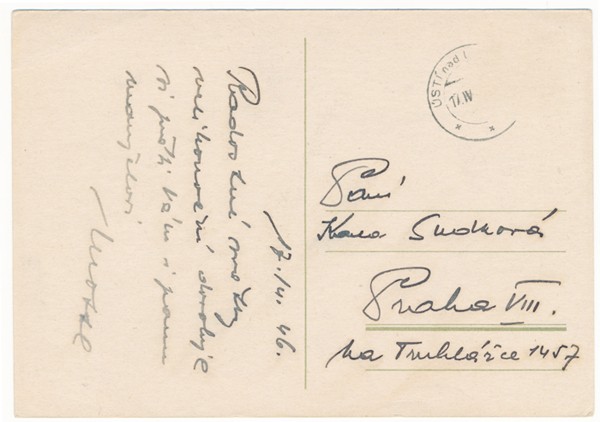 17. IV. 46.
Radostné svátky
velikonoční dovoluje
si přáti Vám i panu
manželovi
ÚSTÍ nad L
17.IV
Paní
Sudková
Praha VIII.
Na Truhlářce 1457